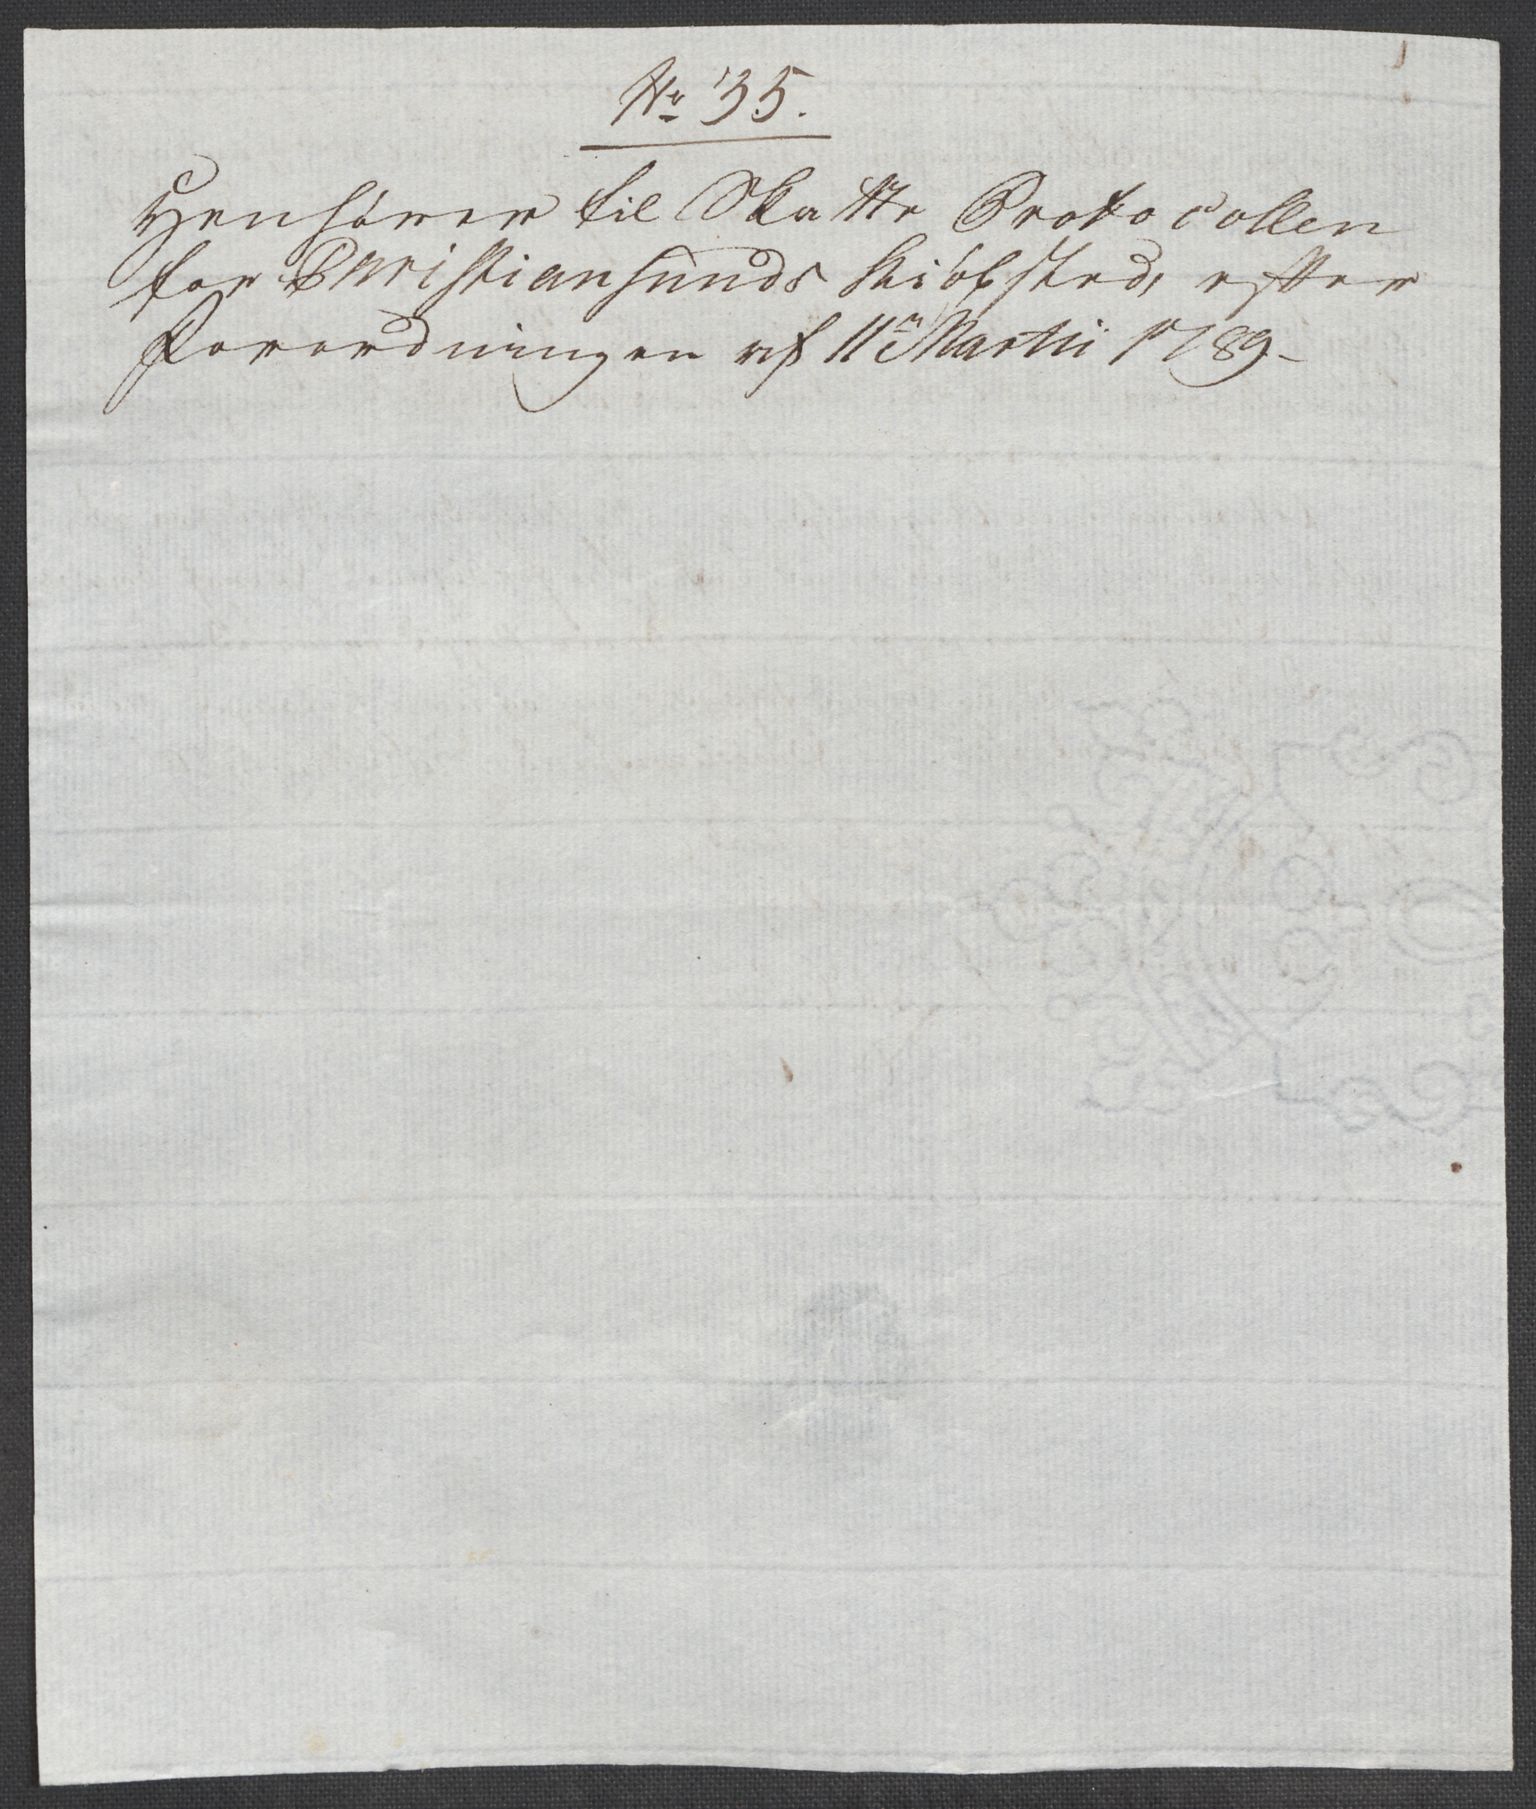 No 35.
Henhører til Skatte Protocollen
for Christiansunds Kiøbsted, efter
Forordningen af 11te Martii 1789.